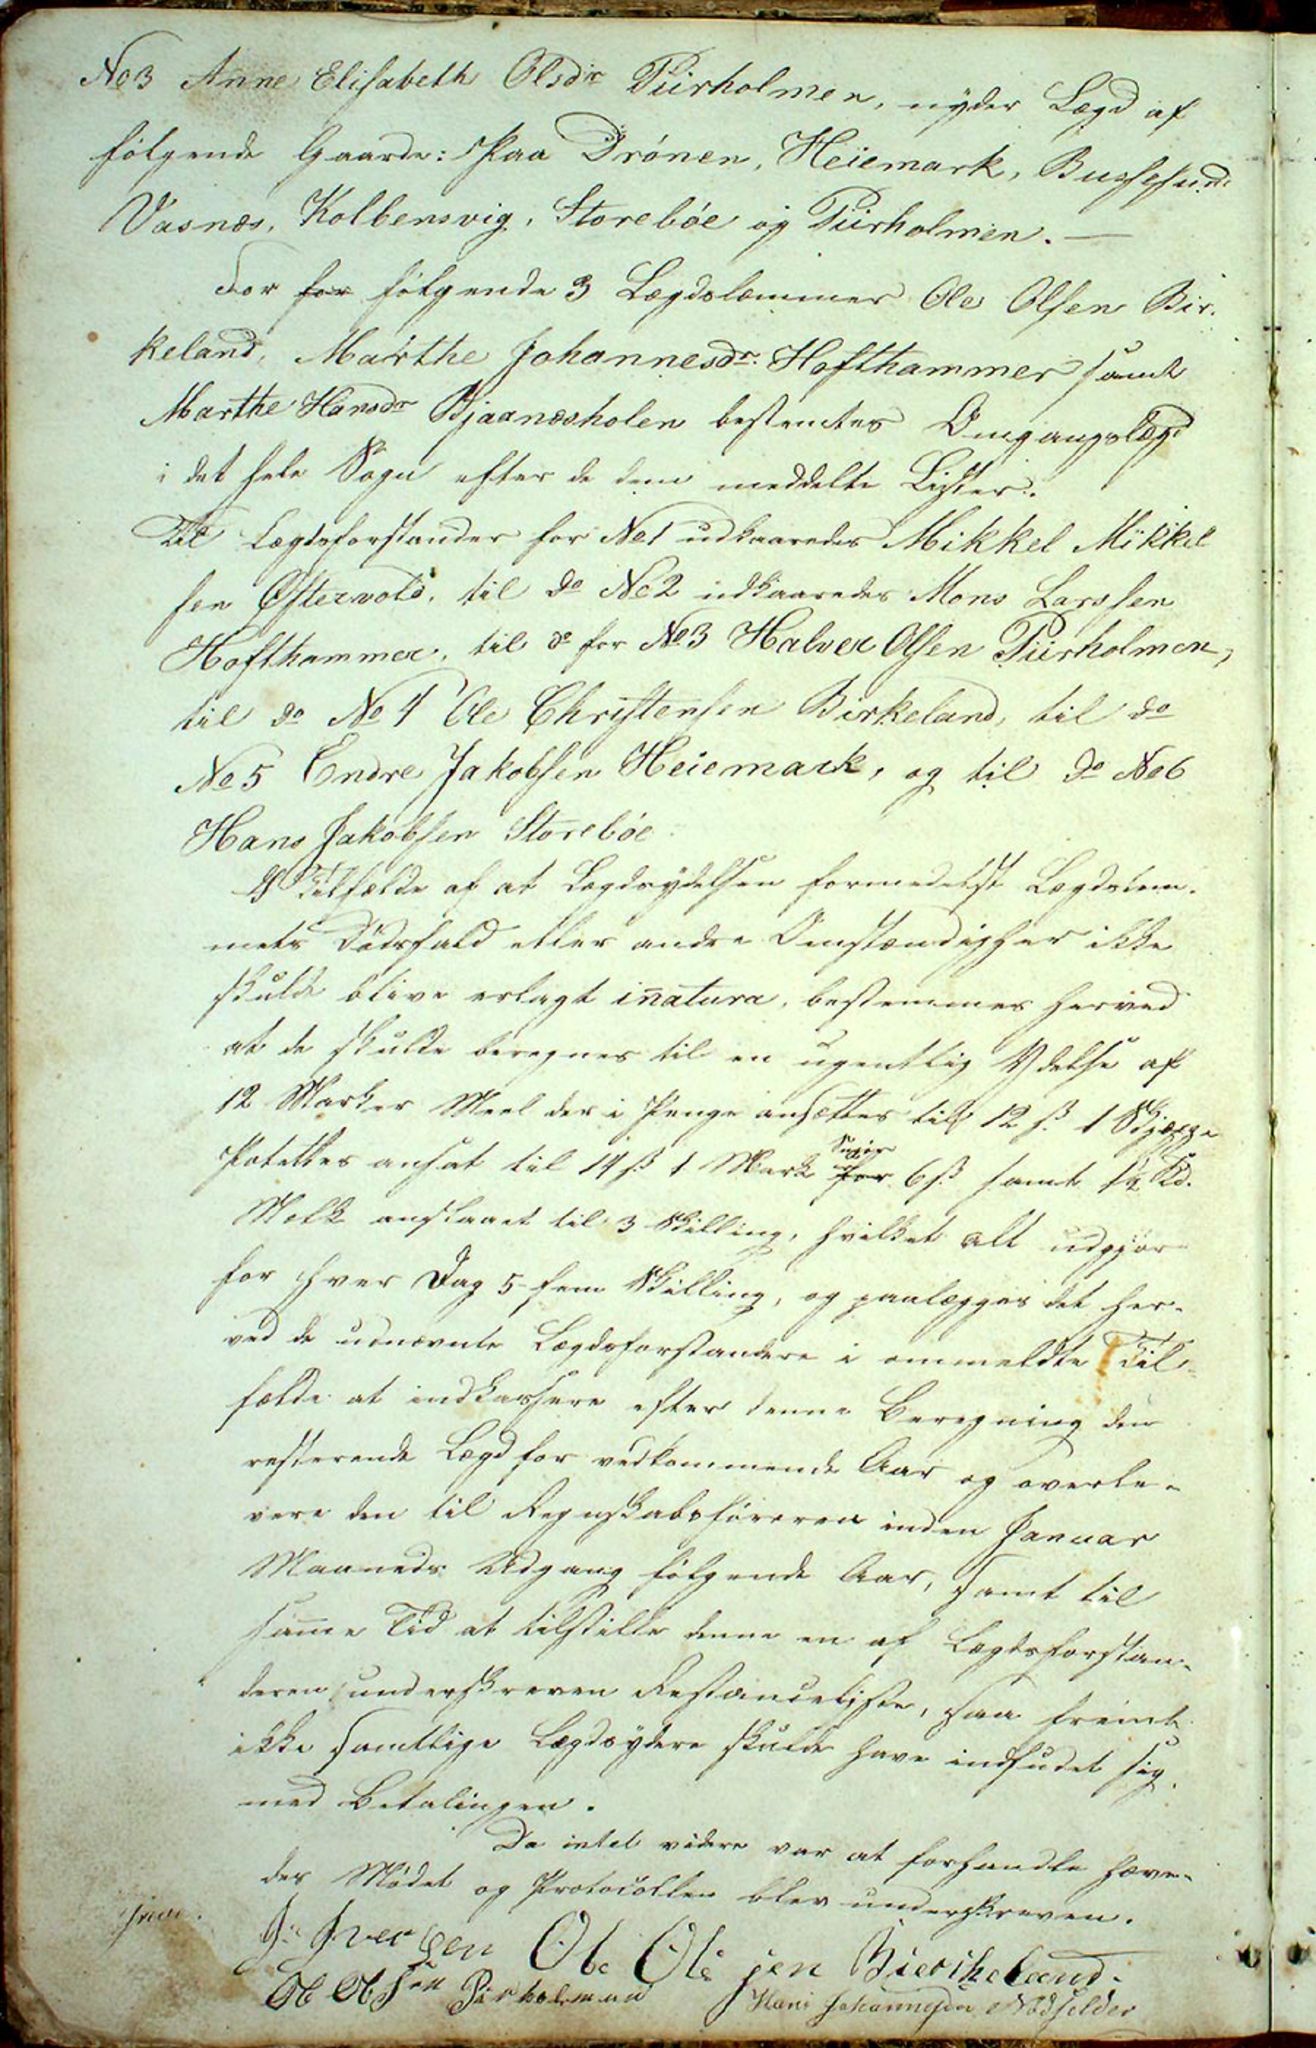 No 3 Anne Elisabeth Olsdr Püirholmen, nyder Lægd af
følgende Gaarde: Paa Drönen, Heiemark, Bussesund
Vasnæs, Kolbensvig, Storebøe og Püirholmen. —
For for følgende 3 Lægdslemmer Ole Olsen Bir-
keland, Marthe Johannesdr. Hofthammer samt
Marthe Hansdr Bjaanæsholen bestemtes Omgangslægd
i det hele Sogn efter de dem meddelte Lister.
Til Lægdsforstander for No 1 udkaaredes Mikkel Mikkel
sen Østervold, til do No 2 udkaaredes Mons Larssen
Hofthammer, til do for No 3 Halver Olsen Püirholmen,
til do No 4 Ole Christensen Birkeland, til do
No 5 Endre Jakobsen Heiemark, og til do No 6
Hans Jakobsen Storebøe
I Tilfælde af at Lægdsydelsen formedelst Lægdslem-
mets Dødsfald eller andre Omstændigheder ikke
skulde blive erlagt in natura, bestemmes herved
at de skulde beregnes til en ugentlig Ydelse af
12 Marker Meel der i Penge ansættes til 12 ß 1 Skjæppe
Poteter ansat til 14 ß 1 Mark for 6 ß samt 1½ Kd.
Melk anslaaet til 3 Skilling, hvilket alt udgjør
for hver Dag 5 fem Skilling, og paalægges det her-
ved de udnævnte Lægdsforstandere i ommeldte Til-
fælde at indkassere efter denne Beregning den
resterende Lægd for vedkommende Aar og overle-
vere den til Regnskabsføreren inden Januar
Maaneds Udgang følgende Aar, samt til
samme Tid at tilstille denne en af Lægdsforstan-
deren underskreven Restanceliste, saa fremt
ikke samtlige Lægdsydere skulde have indfundet sig
med Betalingen.
Da intet videre var at forhandle hæve-
des Mødet og Protocollen blev underskreven.
J. Iversen Ole Olsen Bierkeland.
Ol Olsen Pirholmen Hans Johannesen Nødselder